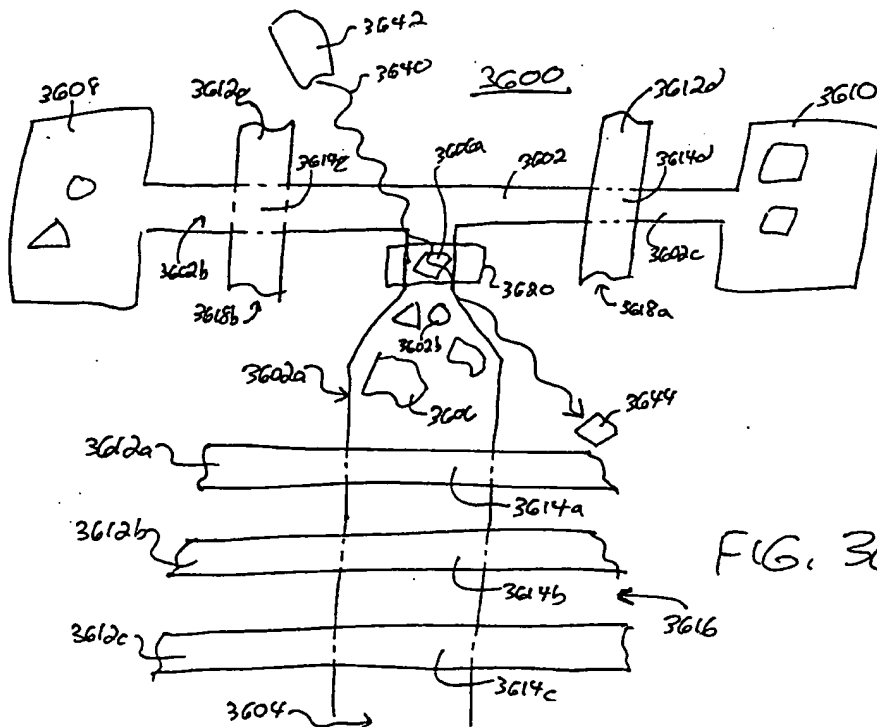 3642
3640
3600
3608
3612e
3612d
3610
3606a
3614e
3602
3614d
3602b
3602c
3618b
3620
3618a
3602b
3602a
3606
3644
3612a
3614a
3612b
3614b
FIG. 3
3616
3612c
3614c
3604